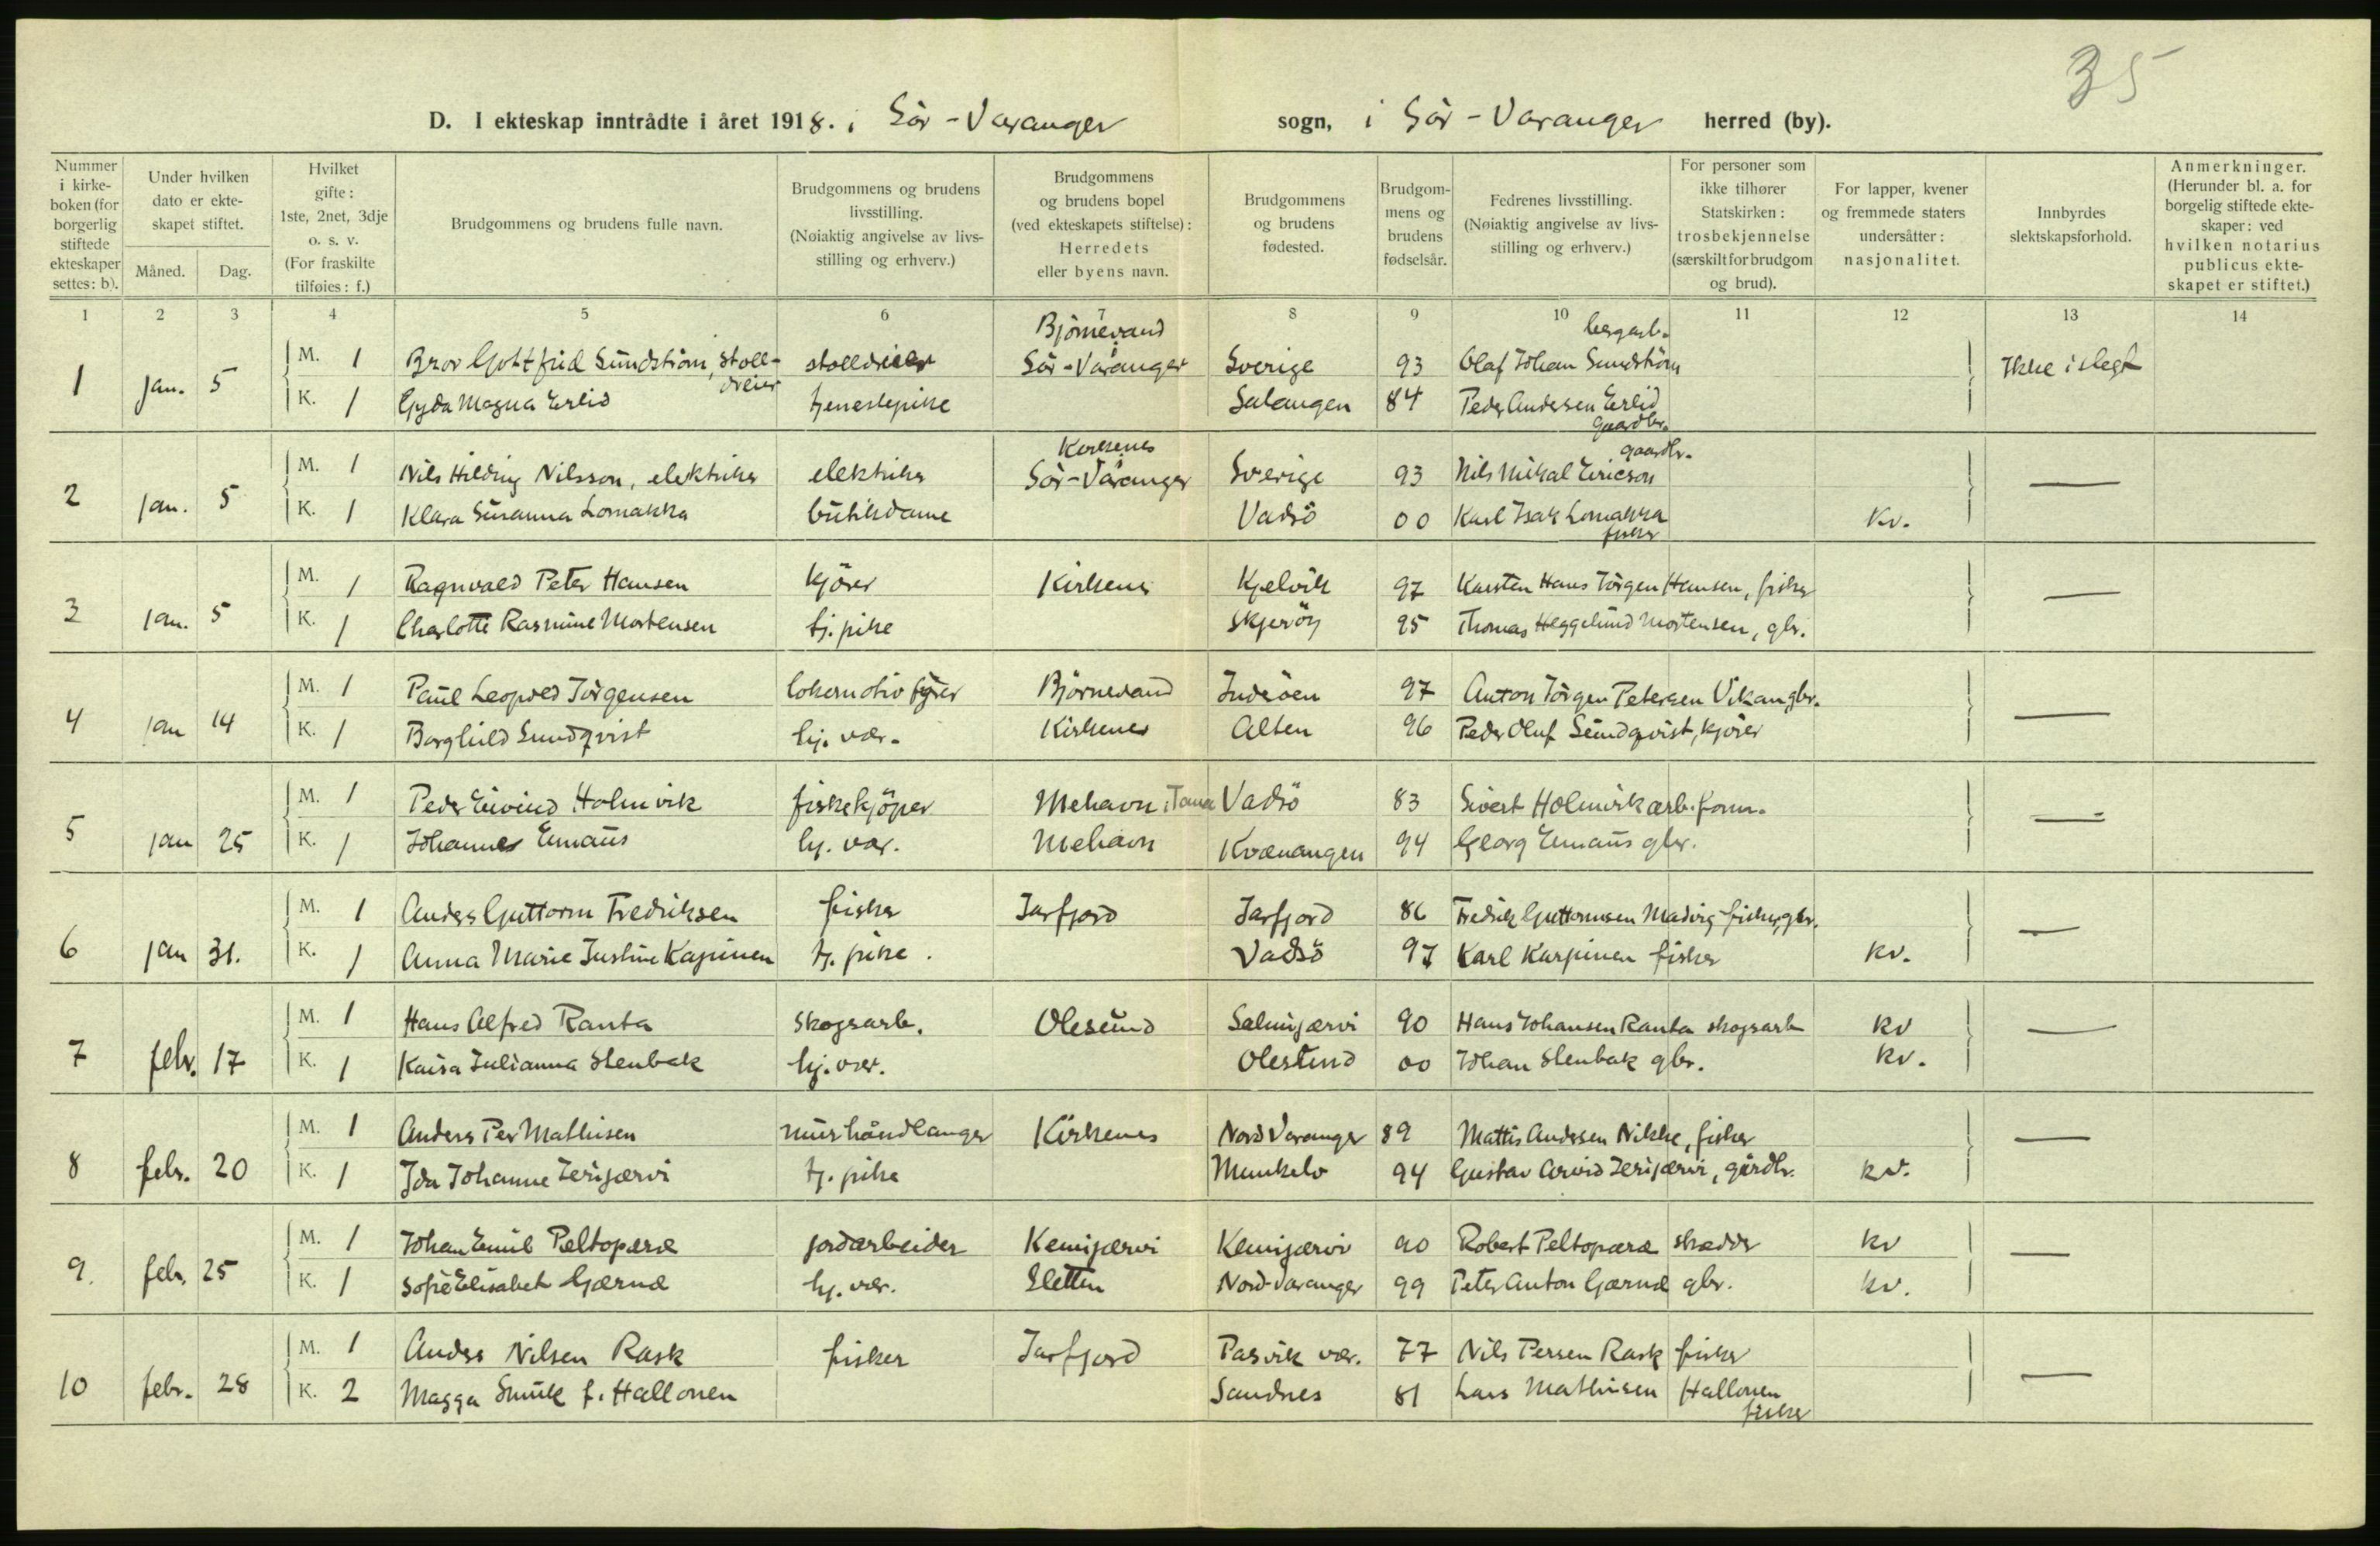 35
D. I ekteskap inntrådte i året 1918. i Sör-Varanger sogn, i Sör-Varanger herred (by).
Nummer i kirkeboken (for borgerlig stiftede ekteskaper settes: b).
Under hvilken dato er ekteskapet stiftet.
Måned. Dag.
Hvilket gifte: 1ste, 2net, 3dje o. s. v. (For fraskilte tilføies: f.)
Brudgommens og brudens fulle navn.
Brudgommens og brudens livsstilling. (Nøiaktig angivelse av livsstilling og erhverv.)
Brudgommens og brudens bopel (ved ekteskapets stiftelse): Herredets eller byens navn.
Brudgommens og brudens fødested.
Brudgommens og brudens fødselsår.
Fedrenes livsstilling. (Nøiaktig angivelse av livsstilling og erhverv.)
For personer som ikke tilhører Statskirken: trosbekjennelse (særskilt for brudgom og brud).
For lapper, kvener og fremmede staters undersåtter: nasjonalitet.
Innbyrdes slektskapsforhold.
Anmerkninger. (Herunder bl. a. for borgelig stiftede ekteskaper: ved hvilken notarius publicus ekteskapet er stiftet.)
1 2 3 4 5 6 7 8 9 10 11 12 13 14
Björnevand bergarb.
1 jan. 5 M. 1 Bror Gottfrid Sundström, stoll- stolldreier Sör-Varanger Sverige 93 Olaf Johan Sundström Ikke i slegt
dreier
K. 1 Gyda Magna Erlid tjenestepike Salangen 84 Peder Andersen Erlid
gaardbr.
Kirkenes gaardbr.
2 jan. 5 M. 1 Nils Hilding Nilsson, elektriker elektriker Sör-Varanger Sverige 93 Nils Mikal Ericson —
K. 1 Klara Susanna Lomakka butikdame Vadsö 00 Karl Isak Lomakka Kv.
fisker
3 jan. 5 M. 1 Ragnvald Peter Hansen kjörer Kirkenes Kjelvik 97 Karsten Hans Jörgen Hansen, fisker —
K. 1 Charlotte Rasmine Mortensen tj. pike Skjeröy 95 Thomas Heggelund Mortensen, gbr.
4 jan 14 M. 1 Paul Leopold Jörgensen lokomotivfyrer Björnevand Inderöen 97 Anton Jörgen Petersen Vikan gbr. —
K. 1 Borghild Sundqvist hj. vær. Kirkenes Alten 96 Peder Oluf Sundqvist, kjörer
5 jan 25 M. 1 Peder Eivind Holmvik fiskekjöper Mehavn, Tana Vadsö 83 Sivert Holmvik arb. form. —
K. 1 Johannes Emaus hj. vær. Mehavn Kvænangen 94 Georg Emaus gbr.
6 jan 31. M. 1 Anders Guttorm Fredriksen fisker Jarfjord Jarfjord 86 Fredrik Guttormsen Madvig fisker, gbr. —
K. 1 Anna Marie Justine Kapinen tj. pike. Vadsö 97 Karl Karpinen fisker kv.
7 febr. 17 M. 1 Hans Alfred Ranta skogsarb. Olesund Salmijærvi 90 Hans Johansen Ranta skogsarb kv —
K. 1 Kaisa Julianna Stenbak hj. vær. Olesund 00 Johan Stenbak gbr. kv.
8 febr. 20 M. 1 Anders Per Mathisen murhåndlanger Kirkenes Nord Varanger 89 Mattis Andersen Nikke, fisker —
K. 1 Ida Johanne Jerijærvi tj. pike Munkelv 94 Gustav Arvid Jerijærvi, gårdbr. kv.
9. febr. 25 M. 1 Johan Emil Peltoperæ jordarbeider Kemijærvi Kemijærvi 90 Robert Peltoperæ skrædder kv —
K. 1 Sofie Elisabet Gjærnæ hj. vær. Sletten Nord-Varanger 99 Peter Anton Gjærnæ gbr. kv.
10 febr. 28 M. 1 Anders Nilsen Rask fisker Jarfjord Pasvik vær. 77 Nils Persen Rask fisker —
K. 2 Magga Smuk f. Hallonen Sandnes 81 Lars Mathisen Hallonen
fisker